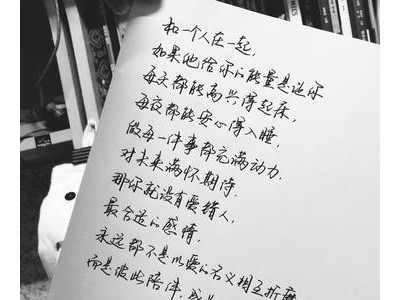 和一个人在一起,
如果他给你的能量是让你
每天都能高兴得起床,
每夜都能安心得入睡,
做每一件事都充满动力,
对未来满怀期待,
那你就没有爱错人,
最合适的感情,
永远都不是以爱的名义相互折磨
而是彼此陪伴,成为